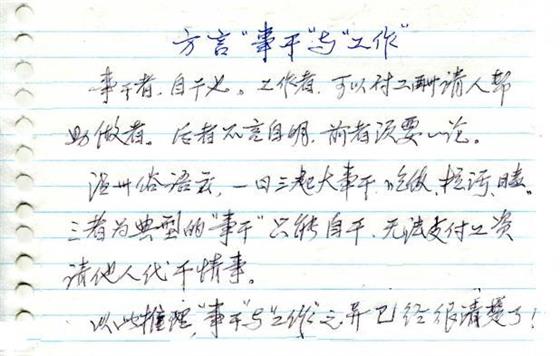 方言“事干”与“工作”
事干者，自干也。工作者，可以付工酬请人帮
助做者。后者不言自明，前者须要一论。
温州俗语云，一日三起大事干，吃饭、拉污、睏。
三者为典型的“事干”只能自干，无法支付工资
请他人代干情事。
以此推理，“事干”与“工作”之异已经很清楚了！